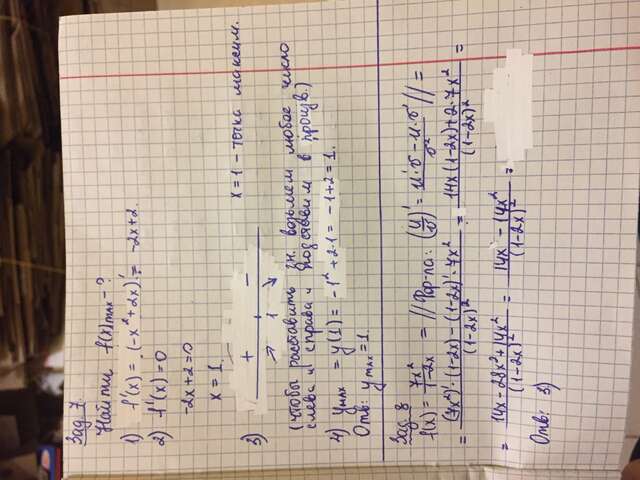 Зад. 7.
Найти f(x)max - ?
1) f'(x) = (-x² + 2x)' = -2x+2.
2) f'(x) = 0
-2x + 2 = 0
x = 1.
3) + - x = 1 - точка максим.
1
(чтобы расставить зн. возьмем любое число
слева и справа и подставим в произв.)
4) ymax = y(1) = -1² + 2·1 = -1+2 = 1.
Отв: ymax = 1.
Зад. 8
f(x) = 7x²/(1-2x) = // Фор-ла: (u/v)' = (u'·v - u·v')/v² // =
= ((7x²)'·(1-2x) - (1-2x)'·7x²)/(1-2x)² = (14x(1-2x)+2·7x²)/(1-2x)² =
= (14x - 28x²+14x²)/(1-2x)² = (14x - 14x²)/(1-2x)² =
Отв: 3)